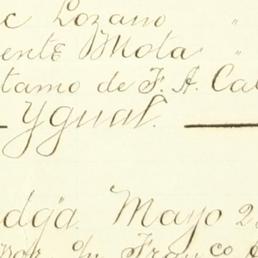 c Lozano "
ente Mota "
tamo de F. A. Cal
Ygual.
dga. Mayo 2